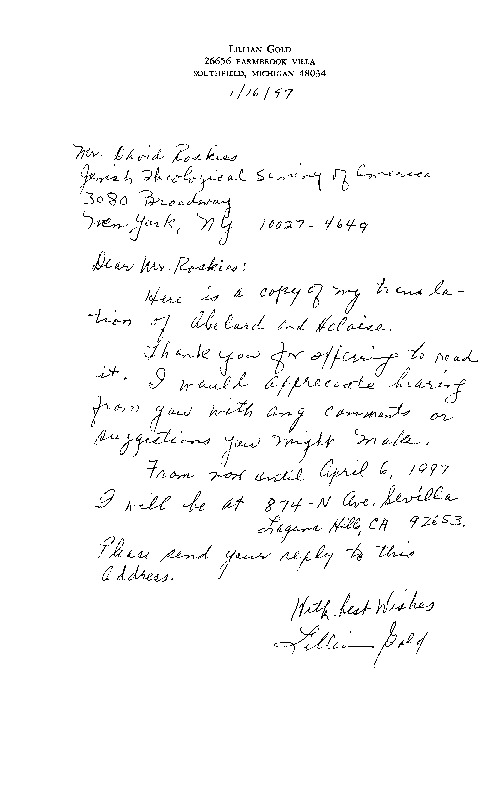 LILLIAN GOLD
26656 FARMBROOK VILLA
SOUTHFIELD, MICHIGAN 48034
1/16/97
Mr. David Roskies
Jewish Theological Seminary of America
3080 Broadway
New York, NY 10027-4649
Dear Mr. Roskies:
Here is a copy of my transla-
tion of Abelard and Heloise.
Thank you for offering to read
it. I would appreciate hearing
from you with any comments or
suggestions you might make.
From now until April 6, 1997
I will be at 874-N Ave. Sevilla
Laguna Hills, CA 92653.
Please send your reply to this
address.
With best Wishes
Lillian Gold